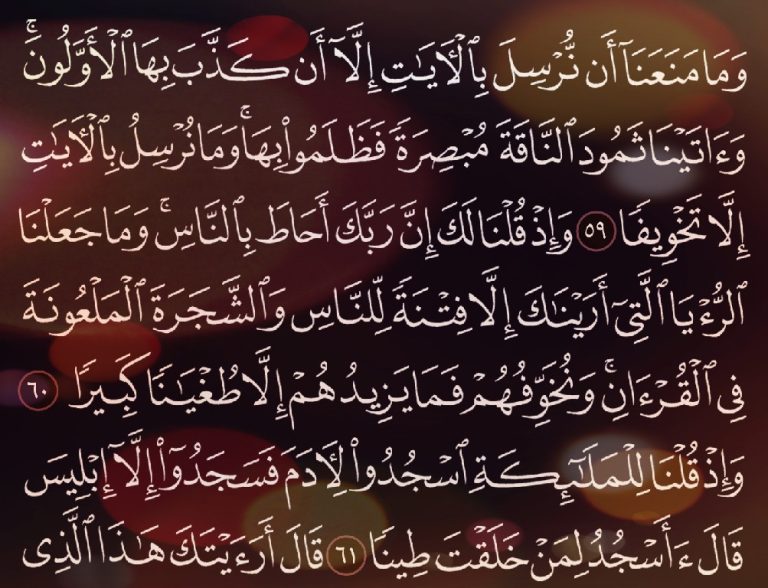 وَمَا مَنَعَنَآ أَن نُّرْسِلَ بِٱلْأَيَٰتِ إِلَّآ أَن كَذَّبَ بِهَا ٱلْأَوَّلُونَ ۚ
وَءَاتَيْنَا ثَمُودَ ٱلنَّاقَةَ مُبْصِرَةً فَظَلَمُوا۟ بِهَا ۚ وَمَا نُرْسِلُ بِٱلْأَيَٰتِ
إِلَّا تَخْوِيفًا ٥٩ وَإِذْ قُلْنَا لَكَ إِنَّ رَبَّكَ أَحَاطَ بِٱلنَّاسِ ۚ وَمَا جَعَلْنَا
ٱلرُّءْيَا ٱلَّتِىٓ أَرَيْنَٰكَ إِلَّا فِتْنَةً لِّلنَّاسِ وَٱلشَّجَرَةَ ٱلْمَلْعُونَةَ
فِى ٱلْقُرْءَانِ ۚ وَنُخَوِّفُهُمْ فَمَا يَزِيدُهُمْ إِلَّا طُغْيَٰنًا كَبِيرًا ٦٠
وَإِذْ قُلْنَا لِلْمَلَٰٓئِكَةِ ٱسْجُدُوا۟ لِأَدَمَ فَسَجَدُوٓا۟ إِلَّآ إِبْلِيسَ
قَالَ ءَأَسْجُدُ لِمَنْ خَلَقْتَ طِينًا ٦١ قَالَ أَرَءَيْتَكَ هَٰذَا ٱلَّذِى